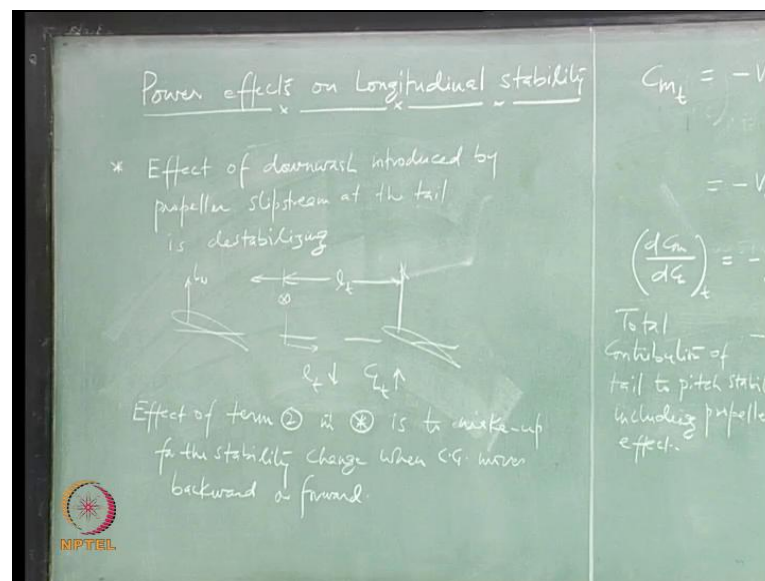 Power effects on Longitudinal stability
* Effect of downwash introduced by
propeller slipstream at the tail
is destabilizing
l_t
l_t ↓ C_{L_t} ↑
Effect of term ② in ⊛ is to make-up
for the stability change when C.G. moves
backward or forward.
C_{m_t} = - V
= - V
(dC_m/dC_L)_t = -
Total
Contribution of
tail to pitch stabil
including propelle
effect.
NPTEL